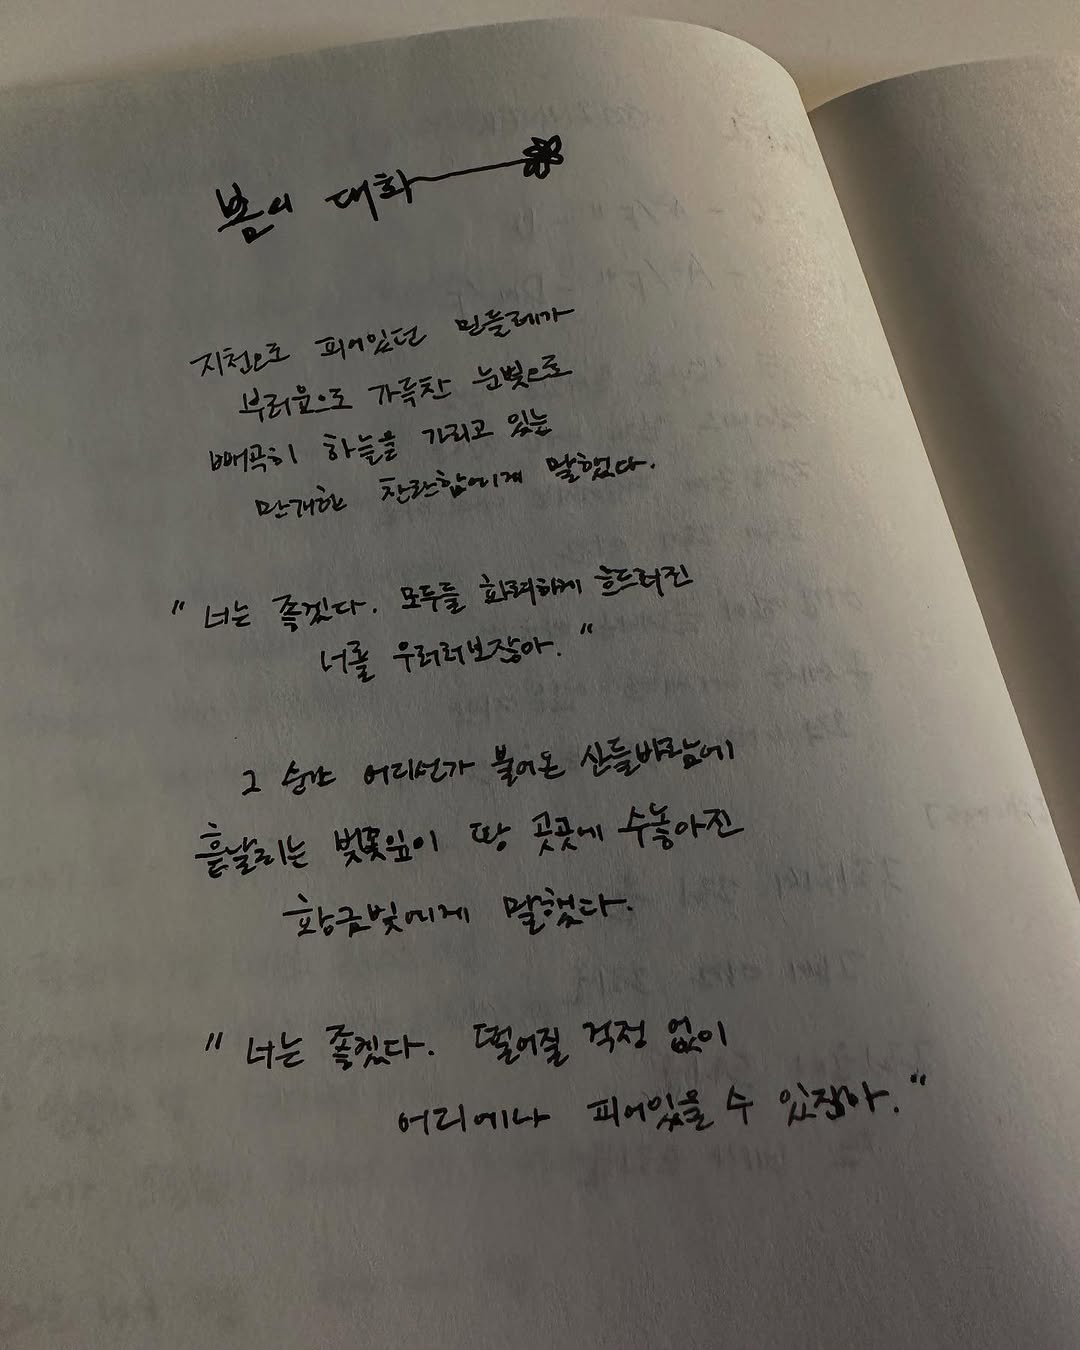 봄의 대화
지천으로 피어있던 민들레가
부러움으로 가득찬 눈빛으로
빼곡히 하늘을 가리고 있는
만개한 찬란함에게 말했다.
"너는 좋겠다. 모두들 화려하게 흐드러진
너를 우러러보잖아."
그 순간 어디선가 불어온 산들바람에
흩날리는 벚꽃잎이 땅 곳곳에 수놓아진
황금빛에게 말했다.
"너는 좋겠다. 떨어질 걱정 없이
어디에나 피어있을 수 있잖아."